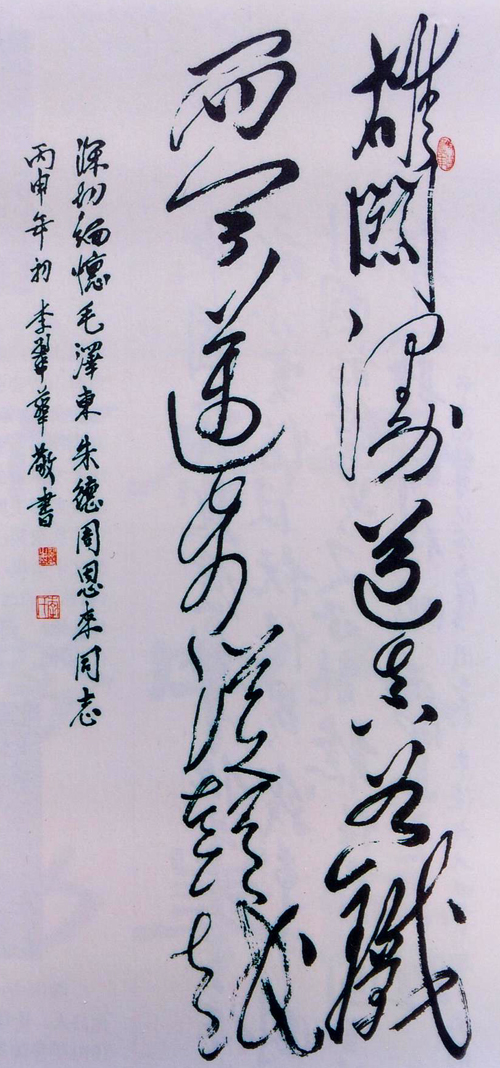 雄關漫道真如鐵
而今邁步從頭越
深切緬懷毛澤東朱德周恩來同志
丙申年初 李翠華敬書